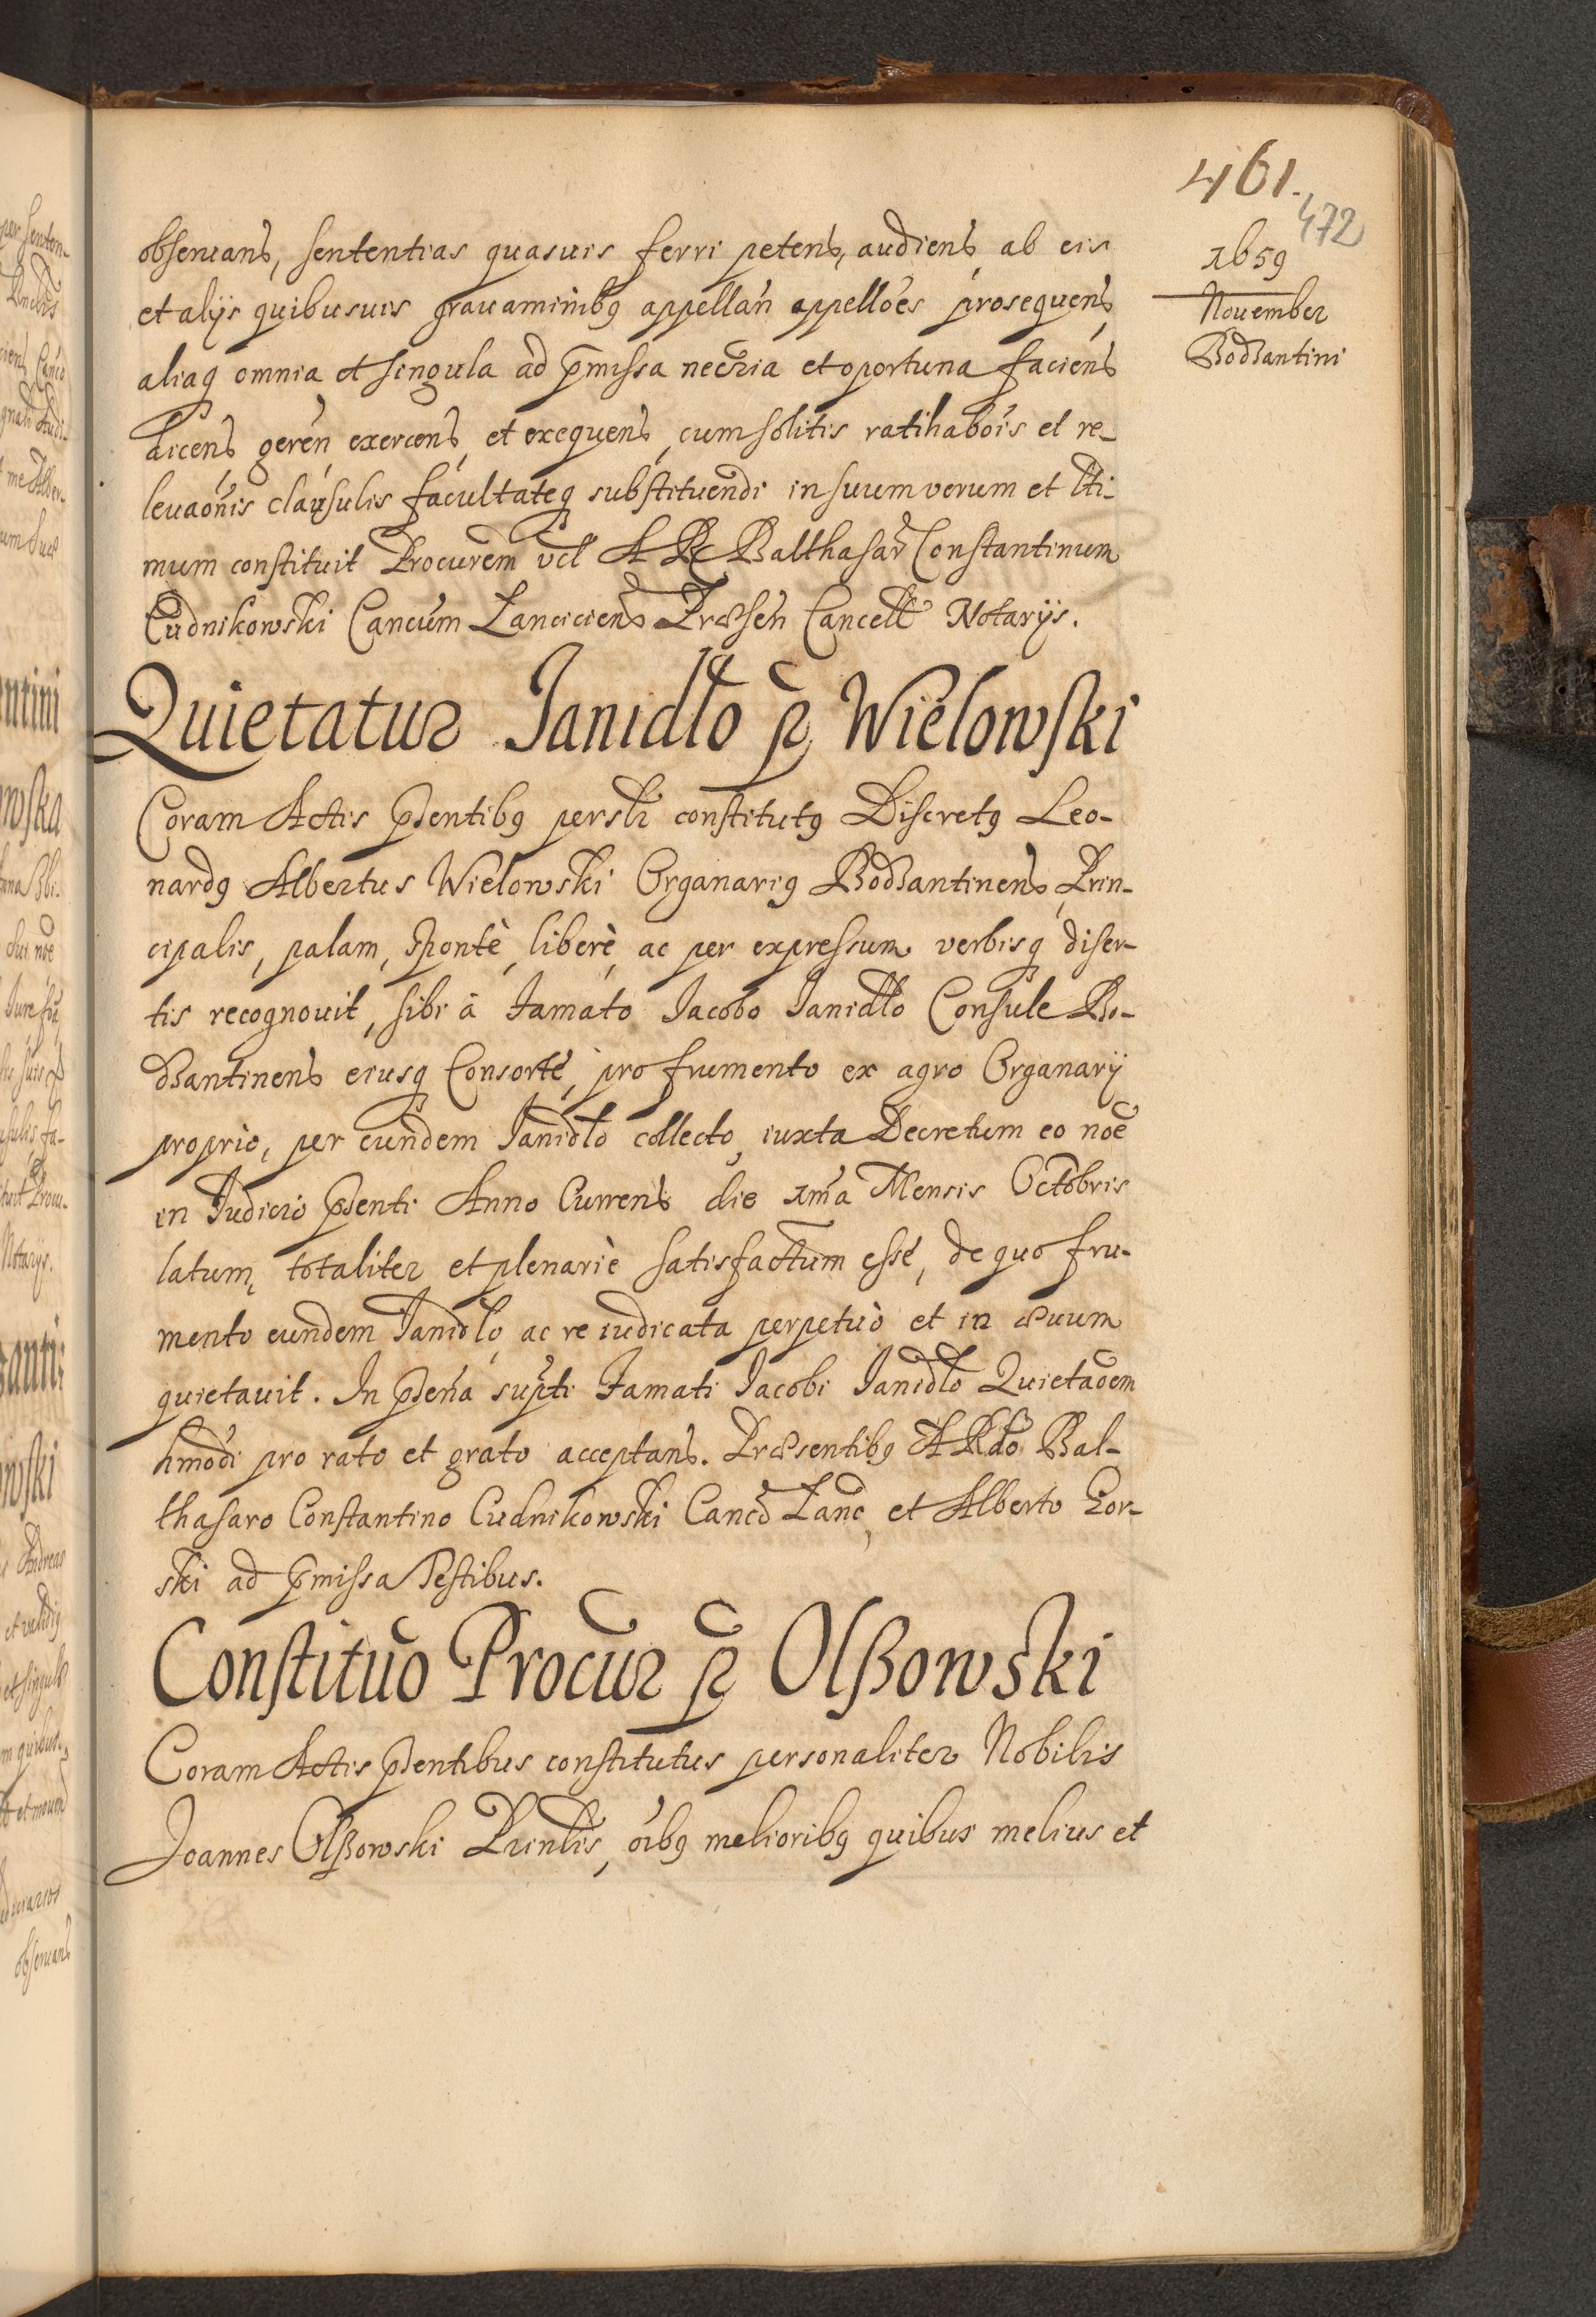 461.
472
1659
November
Bodzantini
obseruans, sententias quasuis ferri petens, audiens, ab eis
et alijs quibusuis grauaminibq appellan appelloes prosequens,
aliaq omnia et singula ad pmissa necria et oportuna faciens
dicens geren exercens, et exequens, cum solitis ratihabois et re-
leuaonis clausulis facultateq substituendi in suum verum et lti-
mum constituit Procurem vel A R Balthasar Constantinum
Cudnikowski Cancum Lanciciens Præsen Cancell Notarijs.
Quietatur Janidło p Wielowski
Coram Actis pñtentibq persli constitutq Discretq Leo-
nardq Albertus Wielowski Organariq Bodzantinens, Prin-
cipalis, palam, sponte, liberè, ac per expressum verbisq diser-
tis recognouit, sibi à Famato Jacobo Janidło Consule Bo-
dzantinens eiusq Consorte, pro frumento ex agro Organarij
proprio, per eundem Janidło collecto, iuxta Decretum eo noe
in Judicio psenti Anno Currens die 1ma Mensis Octobris
latum, totaliter et plenariè satisfactum esse, de quo fru-
mento eundem Janidło, ac re iudicata perpetuò et in æuum
quietauit. In psena supti Famati Jacobi Janidło Quietaoem
hmodi pro rato et grato acceptans. Præsentibq A Rdo Bal-
thasaro Constantino Cudnikowski Canco Lanc, et Alberto Gor-
ski ad pmissa Testibus.
Constituo Procur p Olßowski
Coram Actis psentibus constitutus personaliter Nobilis
Joannes Olßowski Prinlis, oibq melioribq quibus melius et